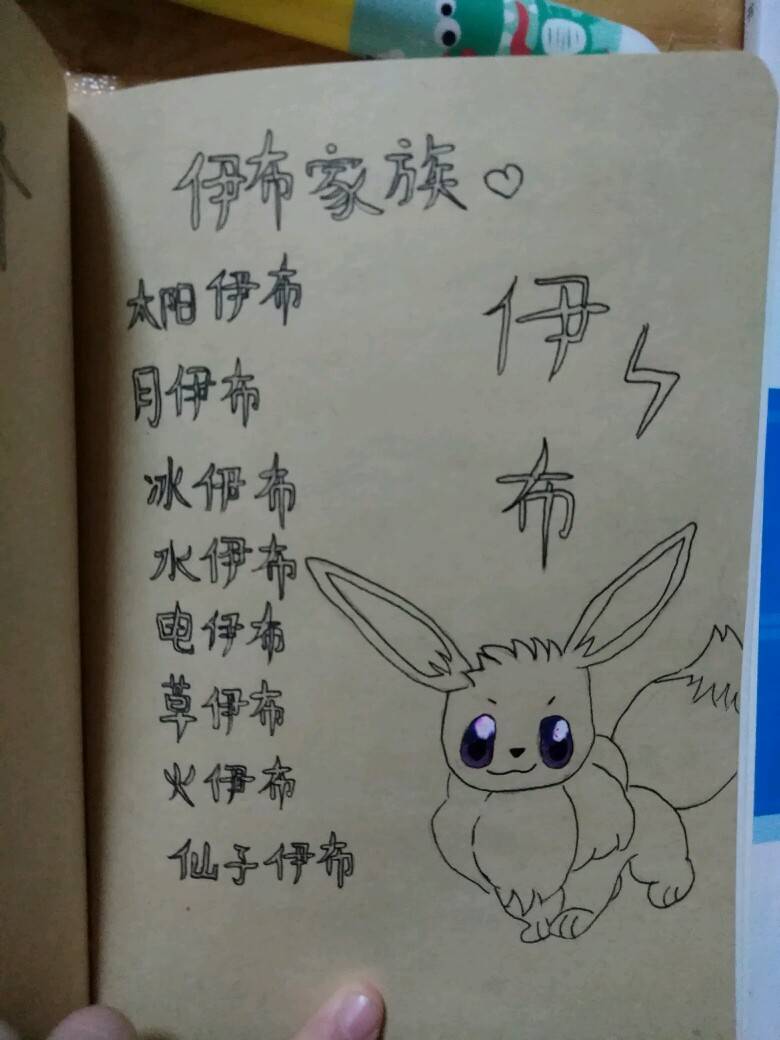 伊布家族♡
太阳伊布
月伊布
冰伊布
水伊布
电伊布
草伊布
火伊布
仙子伊布
伊
布